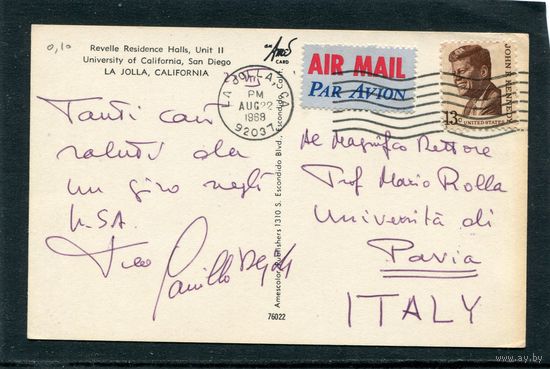 0,10
Revelle Residence Halls, Unit II
University of California, San Diego
LA JOLLA, CALIFORNIA
Tanti cari
saluti da
un giro negli
U.S.A.
Camillo
AN Amés CARD
Amescolor Publishers 1310 S. Escondido Blvd., Escondido
76022
LA JOLLA, CA
PM
AUG 22
1968
92037
AIR MAIL
PAR AVION
JOHN F. KENNEDY
13c UNITED STATES
Al Magnifico Rettore
Prof Mario Rolla
Università di
Pavia
ITALY
www.ay.by